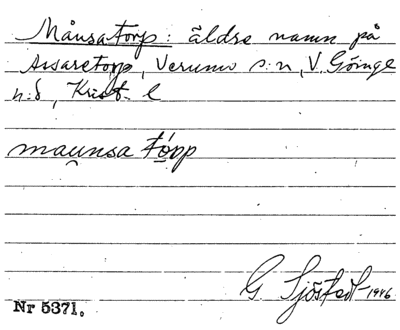 Månsatorp: äldre namn på
Assaretorp, Verums s:n, V. Göinge
h:d, Krist. l
mau̯nsa tó̠pp
G Sjöstedt 1946
Nr 5371.